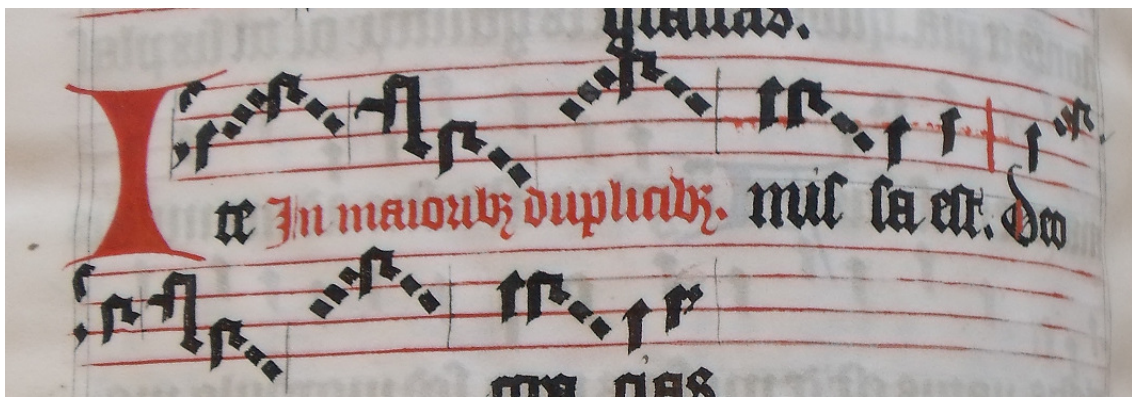 gratias.
Ite In maioribꝫ duplicibꝫ. mis sa est. Deo
gra cias